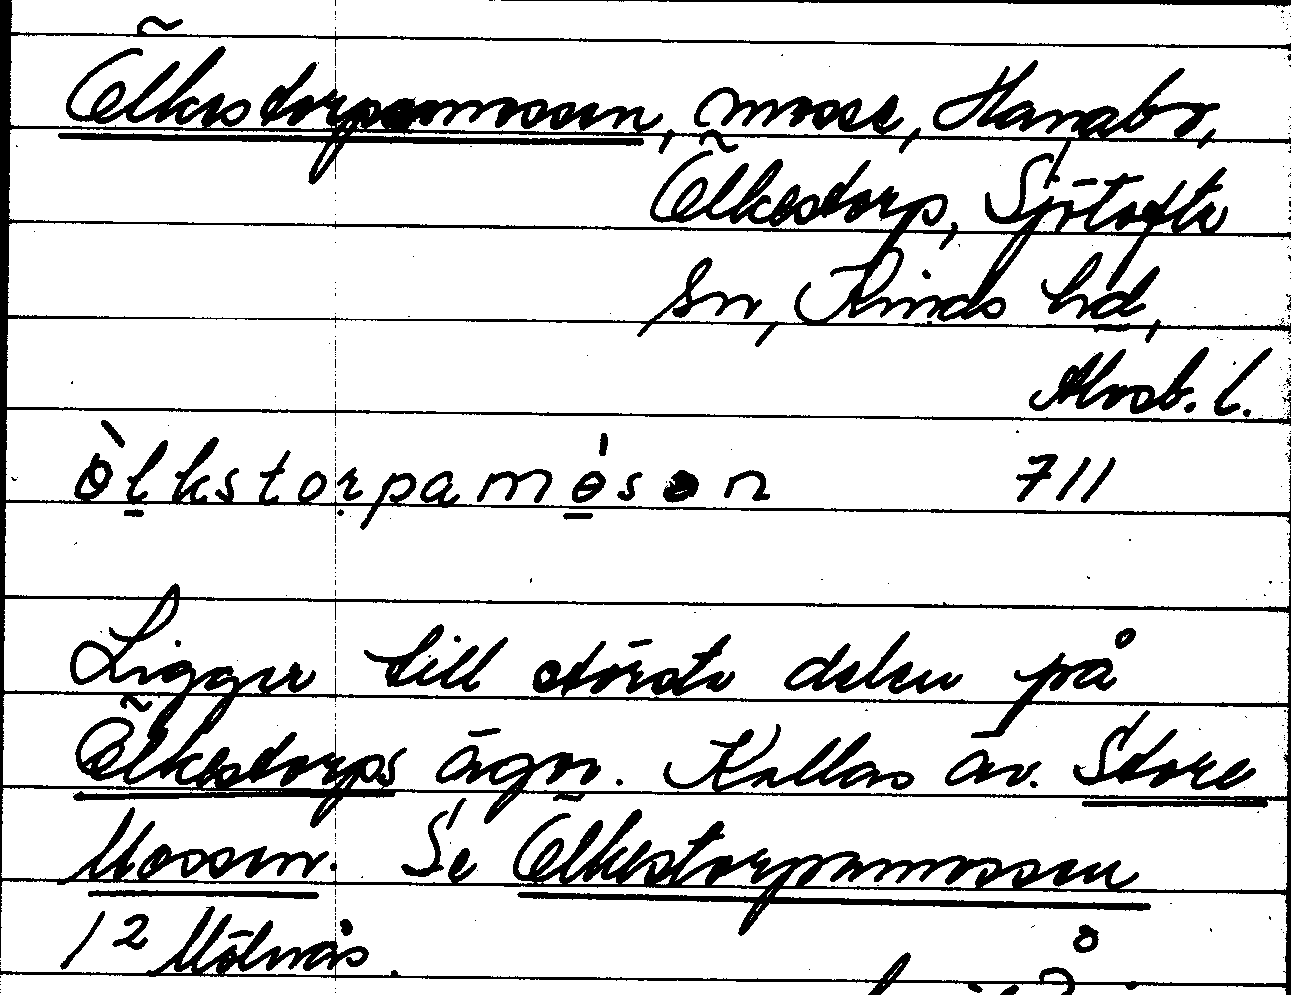 Ölkestorpamossen, mosse, Hanabo,
Ölkestorp, Sjötofta
sn, Kinds hd,
Älvsb. l.
ò̀lkstorpamósen 711
Ligger till största delen på
Ölkestorps ägor. Kallas äv. Store
Mossen. Se Ölkestorpamossen
1 2 Mölnäs.